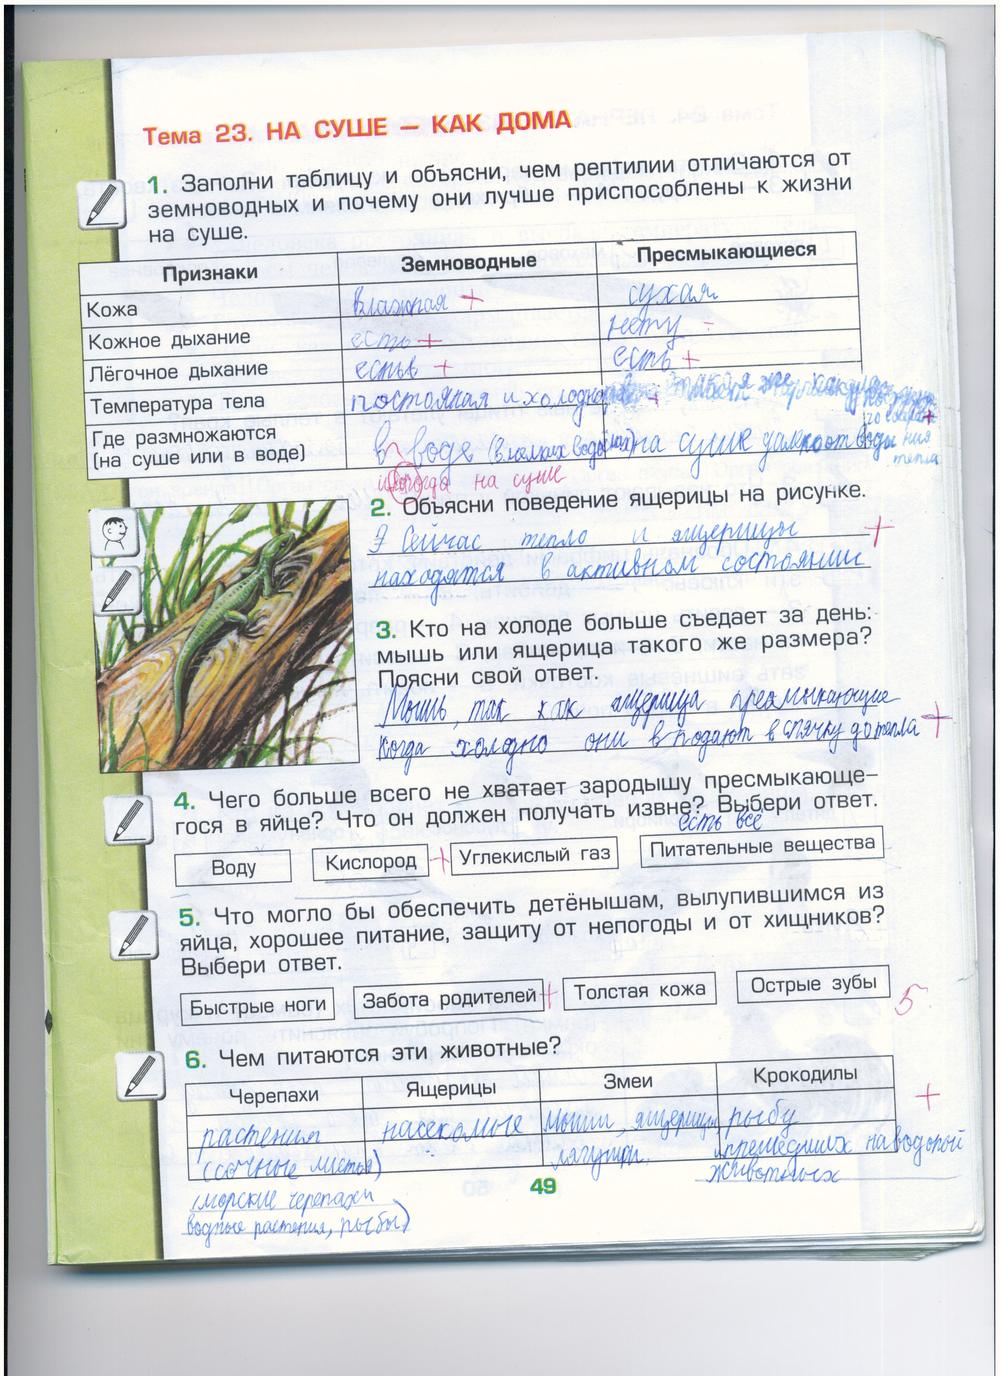 Тема 23. НА СУШЕ – КАК ДОМА
1. Заполни таблицу и объясни, чем рептилии отличаются от
земноводных и почему они лучше приспособлены к жизни
на суше.
Признаки Земноводные Пресмыкающиеся
Кожа влажная + сухая
Кожное дыхание есть + нету -
Лёгочное дыхание есть + есть +
Температура тела постояная и холодная + такая же как
Где размножаются в воде (в мелких водо на суше далеко от воды
(на суше или в воде)
тепла
иногда на суше
2. Объясни поведение ящерицы на рисунке.
Сейчас тепло и ящерицы +
находятся в активном состоянии
3. Кто на холоде больше съедает за день:
мышь или ящерица такого же размера?
Поясни свой ответ.
Мышь, так как ящерица пресмыкающие
когда холодно они в подают в спячку до тепла +
4. Чего больше всего не хватает зародышу пресмыкающе-
гося в яйце? Что он должен получать извне? Выбери ответ.
есть всё
Воду Кислород + Углекислый газ Питательные вещества
5. Что могло бы обеспечить детёнышам, вылупившимся из
яйца, хорошее питание, защиту от непогоды и от хищников?
Выбери ответ.
Быстрые ноги Забота родителей + Толстая кожа Острые зубы
5
6. Чем питаются эти животные?
Черепахи Ящерицы Змеи Крокодилы
+
растения насекомые мыши, ящерицы, рыбу
(сочные листья) лягушки, пришедших на водопой
животных
(морские черепахи
водные растения, рыбы)
49